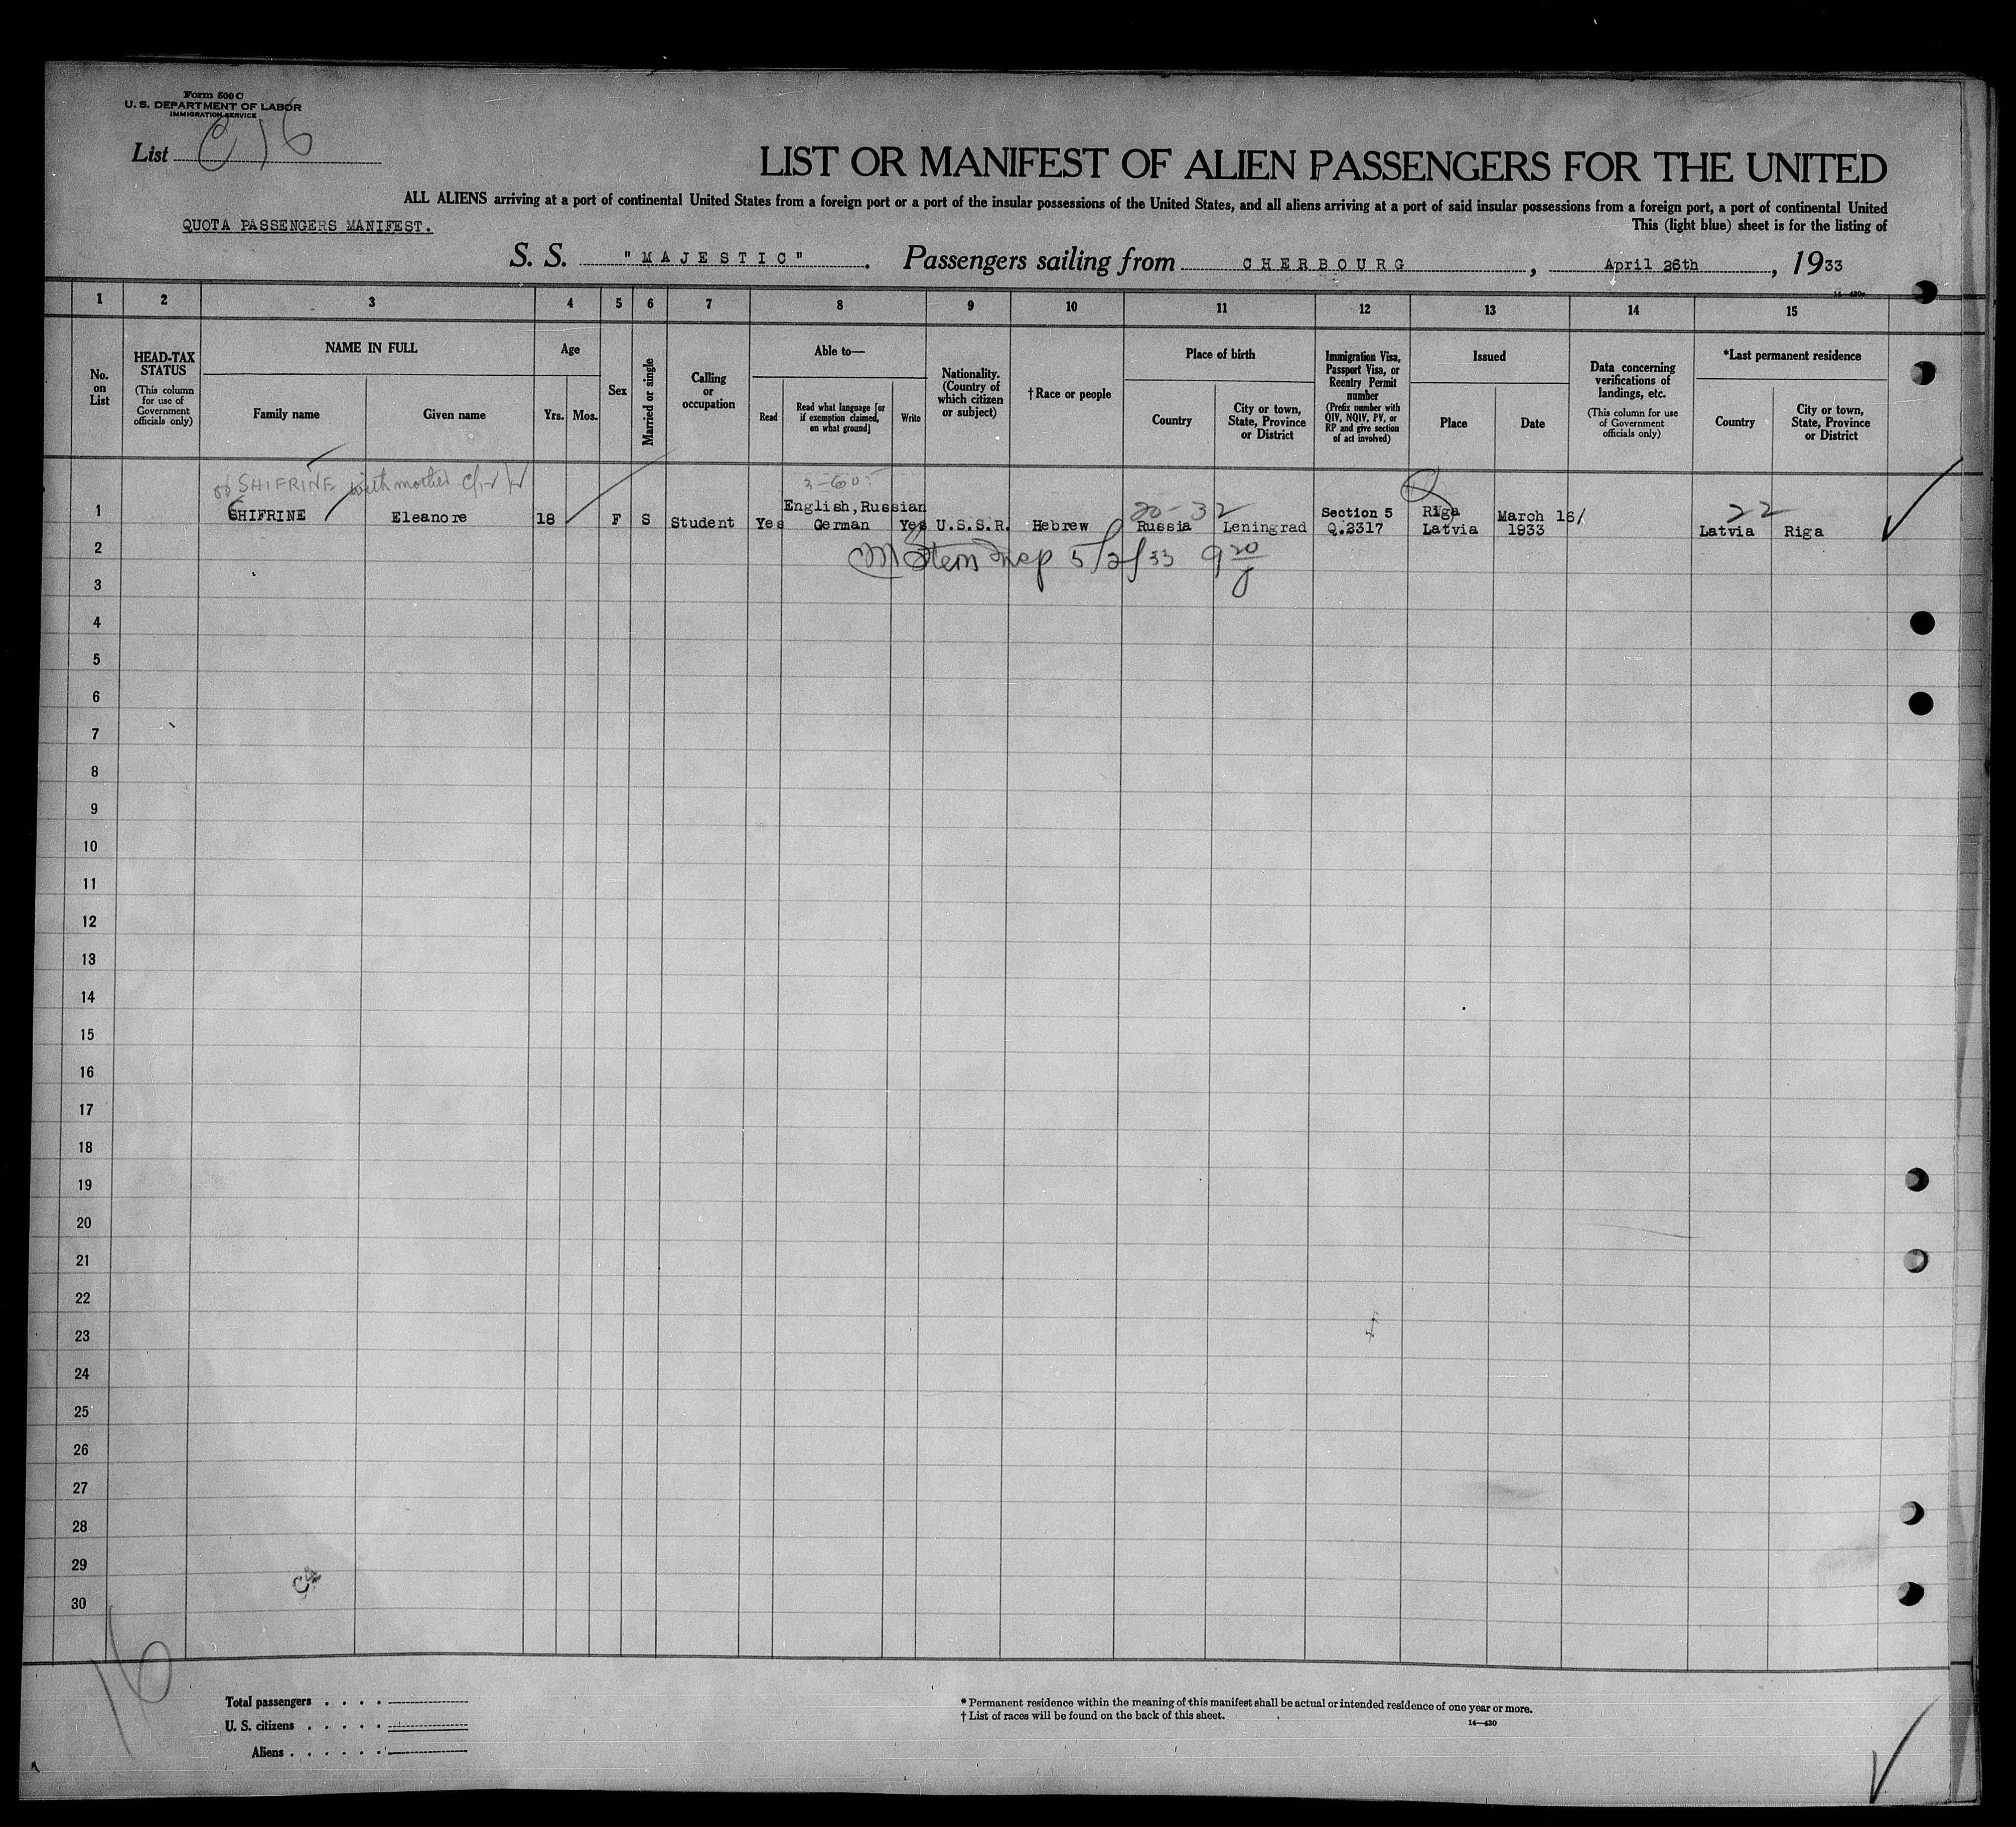 Form 500 C
U. S. DEPARTMENT OF LABOR
IMMIGRATION SERVICE
List C 16
LIST OR MANIFEST OF ALIEN PASSENGERS FOR THE UNITED
ALL ALIENS arriving at a port of continental United States from a foreign port or a port of the insular possessions of the United States, and all aliens arriving at a port of said insular possessions from a foreign port, a port of continental United
QUOTA PASSENGERS MANIFEST.
This (light blue) sheet is for the listing of
S. S. "MAJESTIC". Passengers sailing from CHERBOURG, April 26th, 1933
14—430
1 2 3 4 5 6 7 8 9 10 11 12 13 14 15
No. on List
HEAD-TAX STATUS
(This column for use of Government officials only)
NAME IN FULL
Family name
Given name
Age
Yrs. Mos.
Sex
Married or single
Calling or occupation
Able to—
Read
Read what language [or if exemption claimed, on what ground]
Write
Nationality. (Country of which citizen or subject)
†Race or people
Place of birth
Country
City or town, State, Province or District
Immigration Visa, Passport Visa, or Reentry Permit number
(Prefix number with QIV, NQIV, PV, or RP and give section of act involved)
Issued
Place
Date
Data concerning verifications of landings, etc.
(This column for use of Government officials only)
*Last permanent residence
Country
City or town, State, Province or District
SHIFRINE with mother
1 SHIFRINE Eleanore 18 F S Student Yes English, Russian German Yes U.S.S.R. Hebrew Russia Leningrad Section 5 Q.2317 Riga Latvia March 16/ 1933 Latvia Riga
20-32
22
5/2/33 9 20
2
3
4
5
6
7
8
9
10
11
12
13
14
15
16
17
18
19
20
21
22
23
24
25
26
27
28
29
30
16
Total passengers . . . .
U. S. citizens . . . . .
Aliens . . . . . .
* Permanent residence within the meaning of this manifest shall be actual or intended residence of one year or more.
† List of races will be found on the back of this sheet.
14—430